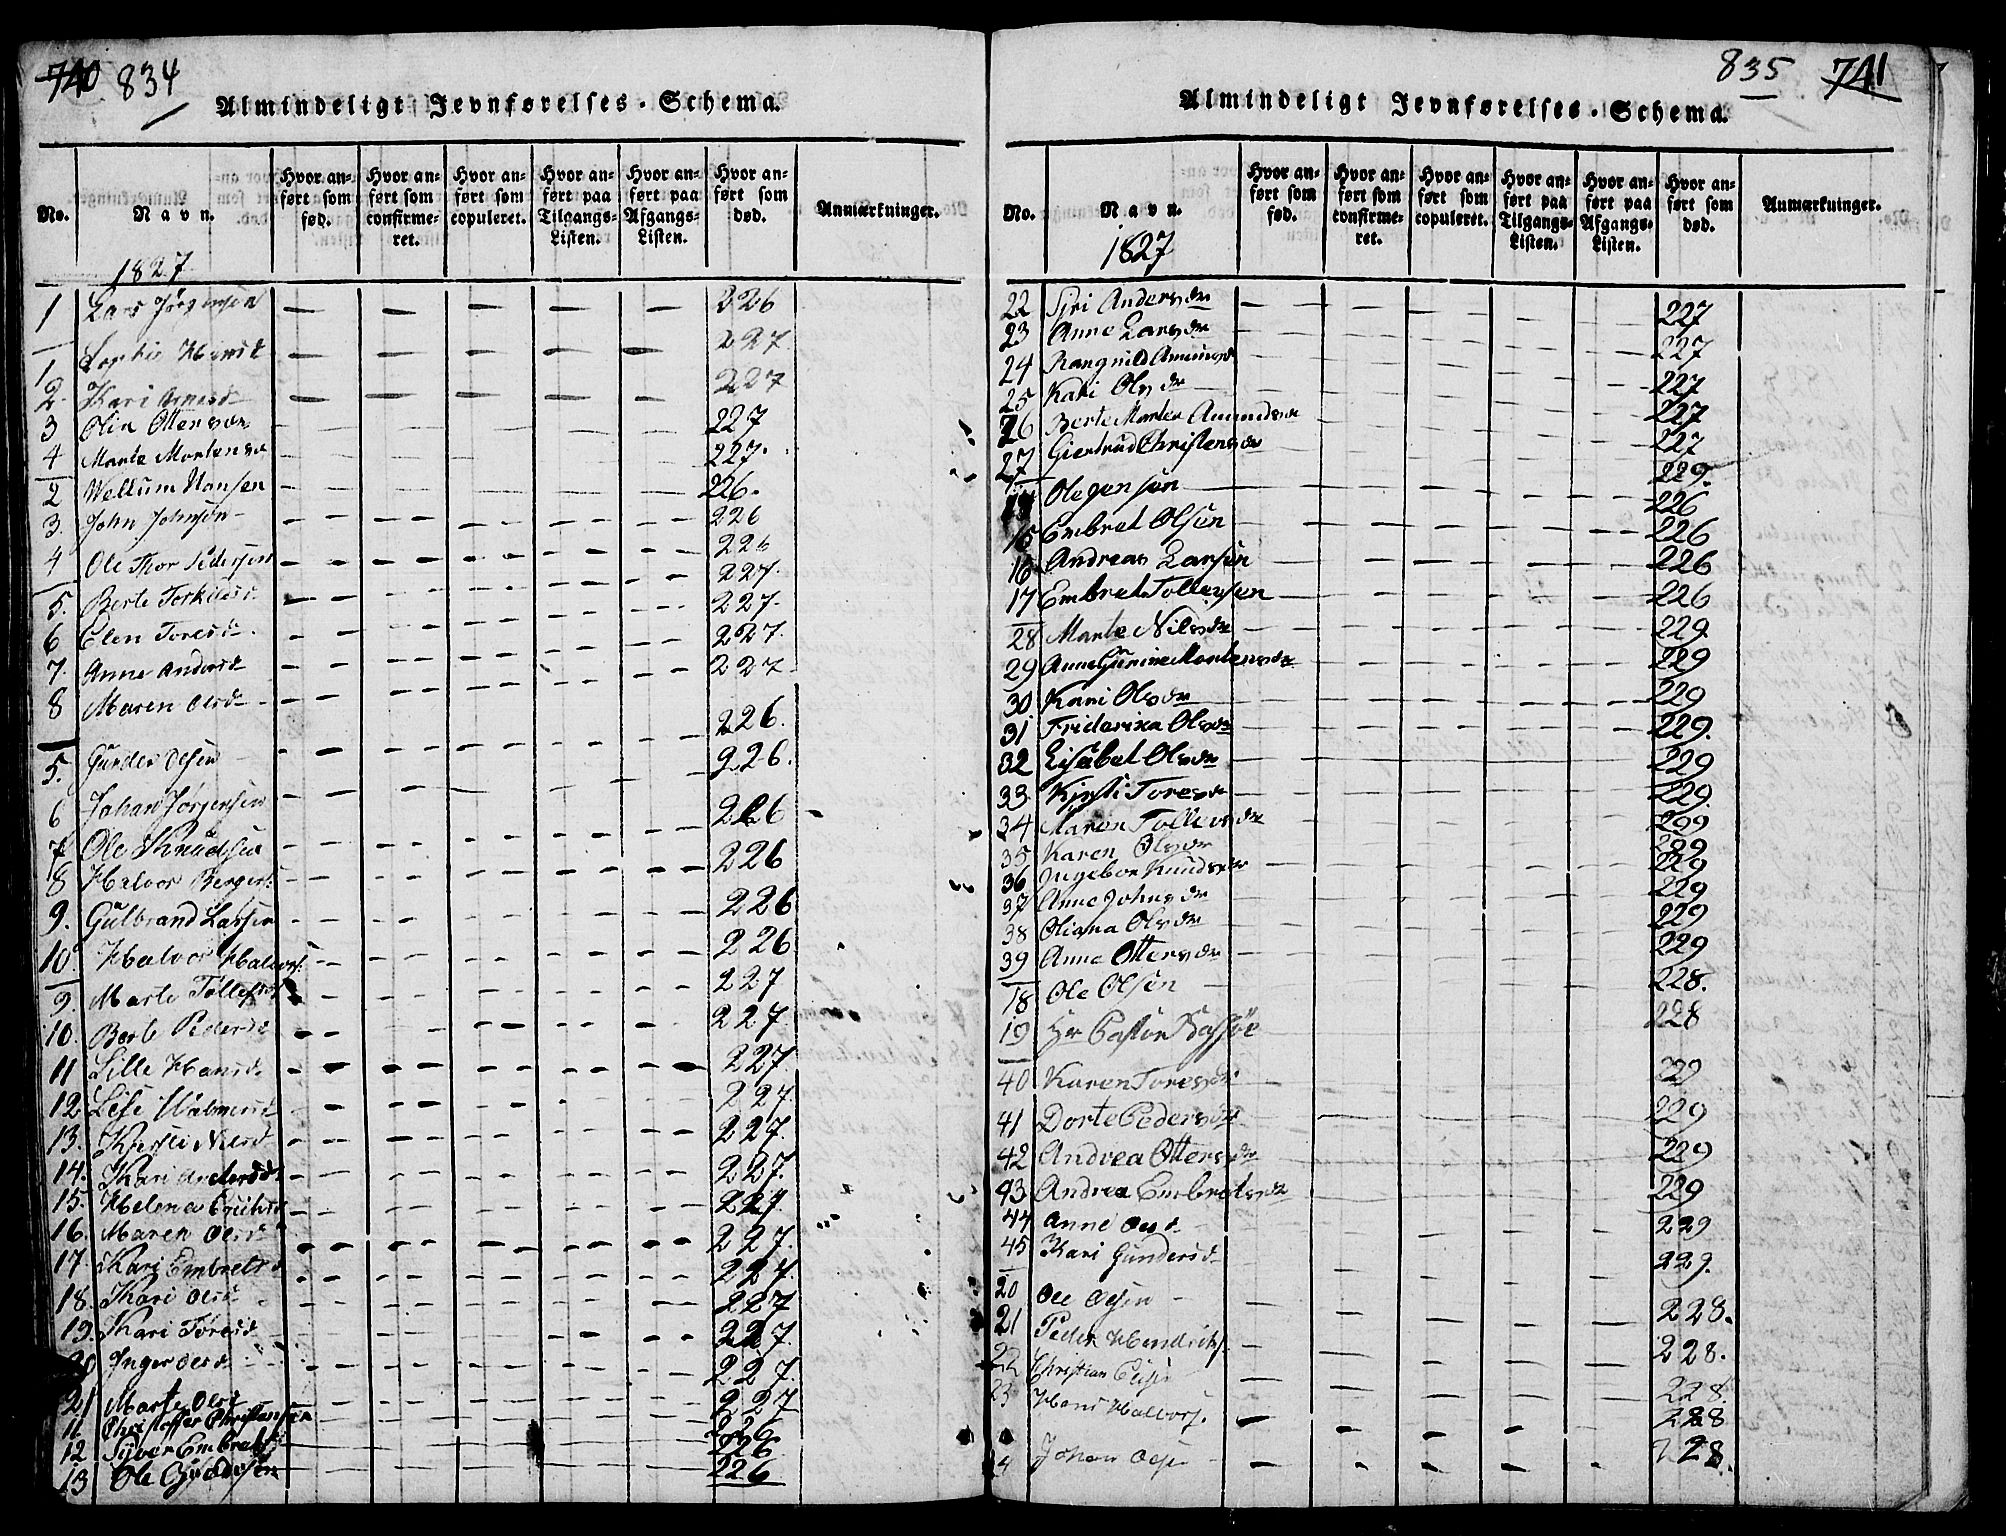 740 834
Almindeligt Jevnførelses-Schema.
No.
Navn.
Hvor anført som fød.
Hvor anført som confirmeret.
Hvor anført som copuleret.
Hvor anført paa Tilgangs-Listen.
Hvor anført paa Afgangs-Listen.
Hvor anført som død.
Anmærkninger.
1827
1 Lars Jörgensen 226
1 Sophie Hansd 227
2. Kari Arnesd 227
3 Olia Ottersdr 227
4 Marte Mortensdr 227.
2 Wellum Hansen 226.
3. John Johnsen 226
4 Ole Thor Pedersen 226
5. Berte Torkildsd 227.
6 Elen Toresd. 227.
7. Anne Andersd 227.
8 Maren Olsd 227
5. Gunder Olsen 226.
6 Johan Jørgensen 226.
7 Ole Knudsen 226
8 Halvor Bergers. 226
9. Gulbrand Larsen 226
10. Halvor Halvors. 226
9. Marte Tollefsd 227
10. Berte Pedersd 227
11 Lille Hansd. 227.
12 Lise Halvorsd 227
13. Kjersti Nilsd 227.
14. Kari Andersd 227.
15. Helena 227
16. Maren Olsd 227.
17. Kari Embretsd 227.
18. Kari Olsd 227
19. Kari Toresd 227.
20 Inger Olsd 227.
21 Marte Olsd 227
11 Christoffer Christiansen 226
12 Syver Embrets 226
13 Ole 226
835 741
Almindeligt Jevnførelses-Schema.
No.
Navn.
Hvor anført som fød.
Hvor anført som confirmeret.
Hvor anført som copuleret.
Hvor anført paa Tilgangs-Listen.
Hvor anført paa Afgangs-Listen.
Hvor anført som død.
Anmærkninger.
1827
22 Siri Andersdr 227
23 Anne Larsdr 227
24 Rangnild Amunds 227
25 Kari Olsdr 227
26 Berte Marter Amundsdr 227
27 Giertrud Christensdr 229.
Ole Jensen 226
15 Embret Olsen 226
16 Andreas Larsen 226
17 Embret Tollefsen 226
28 Marte Nilsdr 229
29 Anne Gurine Mortensdr 229
30 Kari Olsdr 229
31 Friderixa Olsdr 229.
32 Lisabet Olsdr 229
33 Kjersti Toresdr 229.
34 Maren Tollevsdr 229
35 Karen Olsdr 229
36 Ingebor Knudsdr 229
37 Anne Johnsdr 229
38 Oliana Olsdr 229
39 Anne Ottersdr 229
18 Ole Olsen 228.
19 Hr Pastor 228
40 Karen Toresdr 229
41 Dorte Pedersdr 229
42 Andrea Ottersdr 229
43 Andrea Embretsdr 229
44 Anne Olsd 229
45 Kari Gundersd 229.
20 Ole Olsen 228.
21 Peder Hendriks. 228.
22 Christian 228
23 Hans Halvors. 228
Johan Olsen 228.